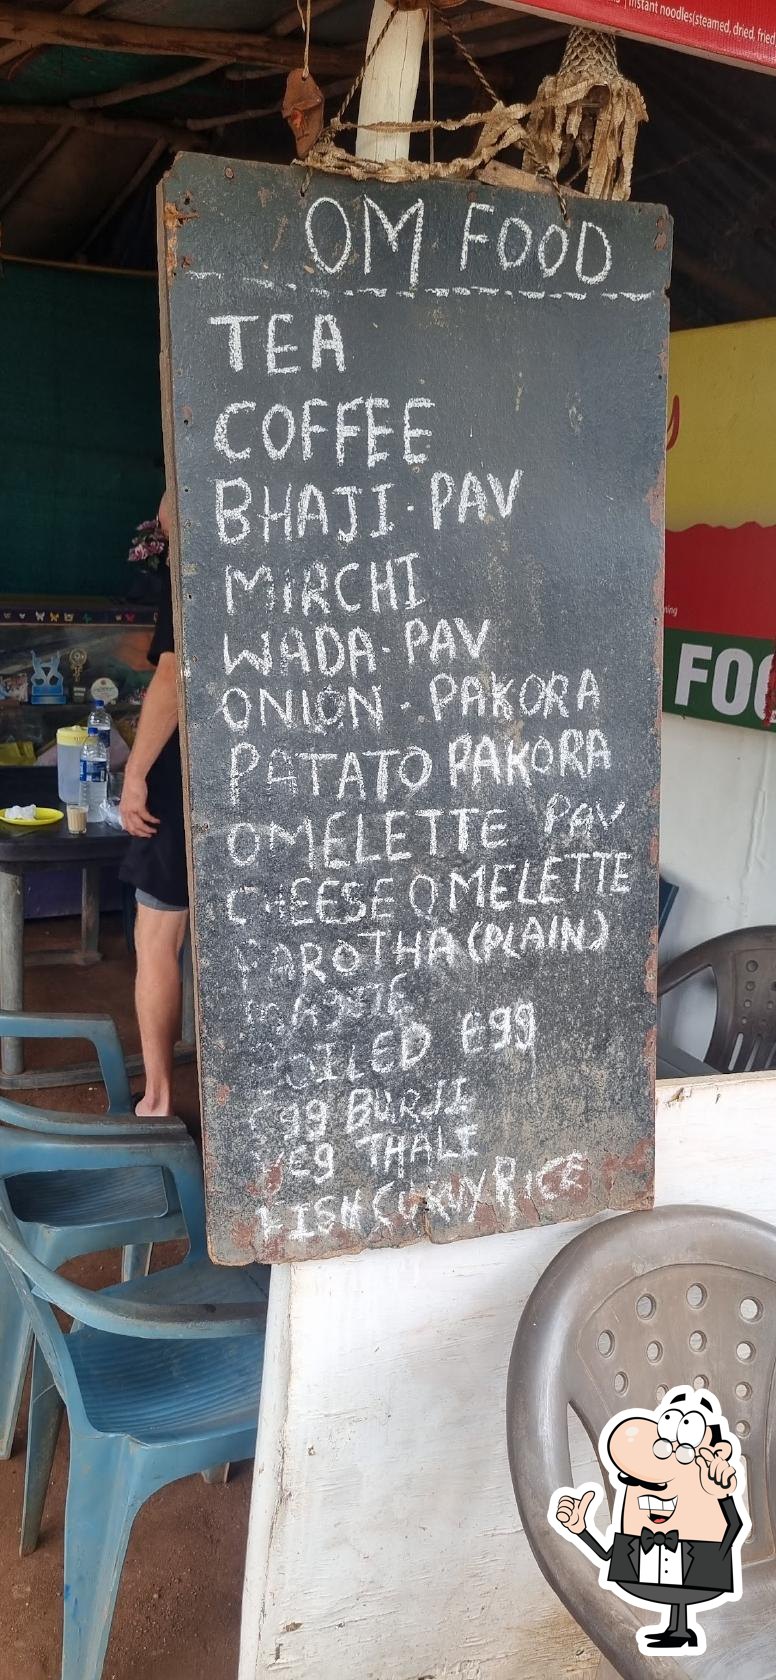 Instant noodles(steamed, dried, fried
OM FOOD
TEA
COFFEE
BHAJI-PAV
MIRCHI
WADA-PAV
ONION - PAKORA
PATATO PAKORA
OMELETTE PAV
CHEESE OMELETTE
PAROTHA (PLAIN)
BOILED E99
E99 BURJI
VE9 THALI
FISH CURUY RICE